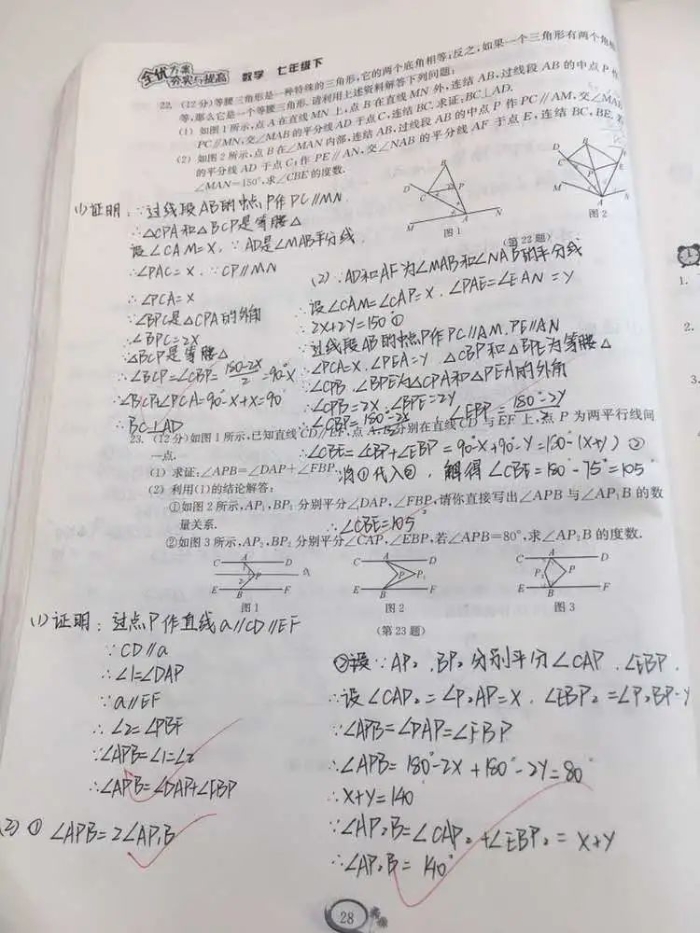 全优方案 夯实与提高 数学 七年级下
22. (12分)等腰三角形是一种特殊的三角形,它的两个底角相等;反之,如果一个三角形有两个角相
等,那么它是一个等腰三角形.请利用上述资料解答下列问题:
(1) 如图1所示,点A在直线MN上,点B在直线MN外,连结AB,过线段AB的中点P作
PC∥MN,交∠MAB的平分线AD于点C,连结BC.求证:BC⊥AD.
(2) 如图2所示,点B在∠MAN内部,连结AB,过线段AB的中点P作PC∥AM,交∠MAB
的平分线AD于点C;作PE∥AN,交∠NAB的平分线AF于点E,连结BC,BE.若
∠MAN=150°,求∠CBE的度数.
B
D
C
P
M
A
N
图1
(第22题)
B
D
C
P
E
F
M
A
N
图2
(1)证明:∵过线段AB的中点P作PC∥MN
∴△CPA和△BCP是等腰△
设∠CAM=X,∵AD是∠MAB平分线
∴∠PAC=X.∵CP∥MN
∴∠PCA=X
∵∠BPC是△CPA的外角
∴∠BPC=2X
∵△BCP是等腰△
∴∠BCP=∠CBP=(180-2X)/2=90°-X
∵∠BCP+∠PCA=90°-X+X=90°
∴BC⊥AD
(2)∵AD和AF为∠MAB和∠NAB的平分线
∴设∠CAM=∠CAP=X.∠PAE=∠EAN=Y
∴2X+2Y=150° ①
∵过线段AB的中点P作PC∥AM.PE∥AN
∴∠PCA=X.∠PEA=Y.△CBP和△BPE为等腰△
∵∠CPB.∠BPE为△CPA和△PEA的外角
∴∠CPB=2X.∠BPE=2Y
∴∠CBP=180°-2X ∠EBP=180°-2Y
∴∠CBE=∠BP+∠EBP=90°-X+90°-Y=180°-(X+Y) ②
将①代入②,解得∠CBE=180°-75°=105°
∴∠CBE=105°
23. (12分)如图1所示,已知直线CD∥EF,点A,B分别在直线CD与EF上,点P为两平行线间
一点.
(1) 求证:∠APB=∠DAP+∠FBP.
(2) 利用(1)的结论解答:
①如图2所示,AP₁,BP₁分别平分∠DAP,∠FBP,请你直接写出∠APB与∠AP₁B的数
量关系.
②如图3所示,AP₂,BP₂分别平分∠CAP,∠EBP,若∠APB=80°,求∠AP₂B的度数.
C A D
1
2
P
a
E B F
图1
C A D
P P₁
E B F
图2
C A D
P₂ P
E B F
图3
(第23题)
(1)证明:过点P作直线a∥CD∥EF
∵CD∥a
∴∠1=∠DAP
∵a∥EF
∴∠2=∠PBF
∵∠APB=∠1=∠2
∴∠APB=∠DAP+∠FBP
(2) ① ∠APB=2∠AP₁B
②设∵AP₂.BP₂分别平分∠CAP.∠EBP.
∴设∠CAP₂=∠P₂AP=X.∠EBP₂=∠P₂BP=Y
∵∠APB=∠DAP=∠FBP
∴∠APB=180°-2X+180°-2Y=80°
∴X+Y=140°
∵∠AP₂B=∠CAP₂+∠EBP₂=X+Y
∴∠AP₂B=140°
28
1.
2.
3.